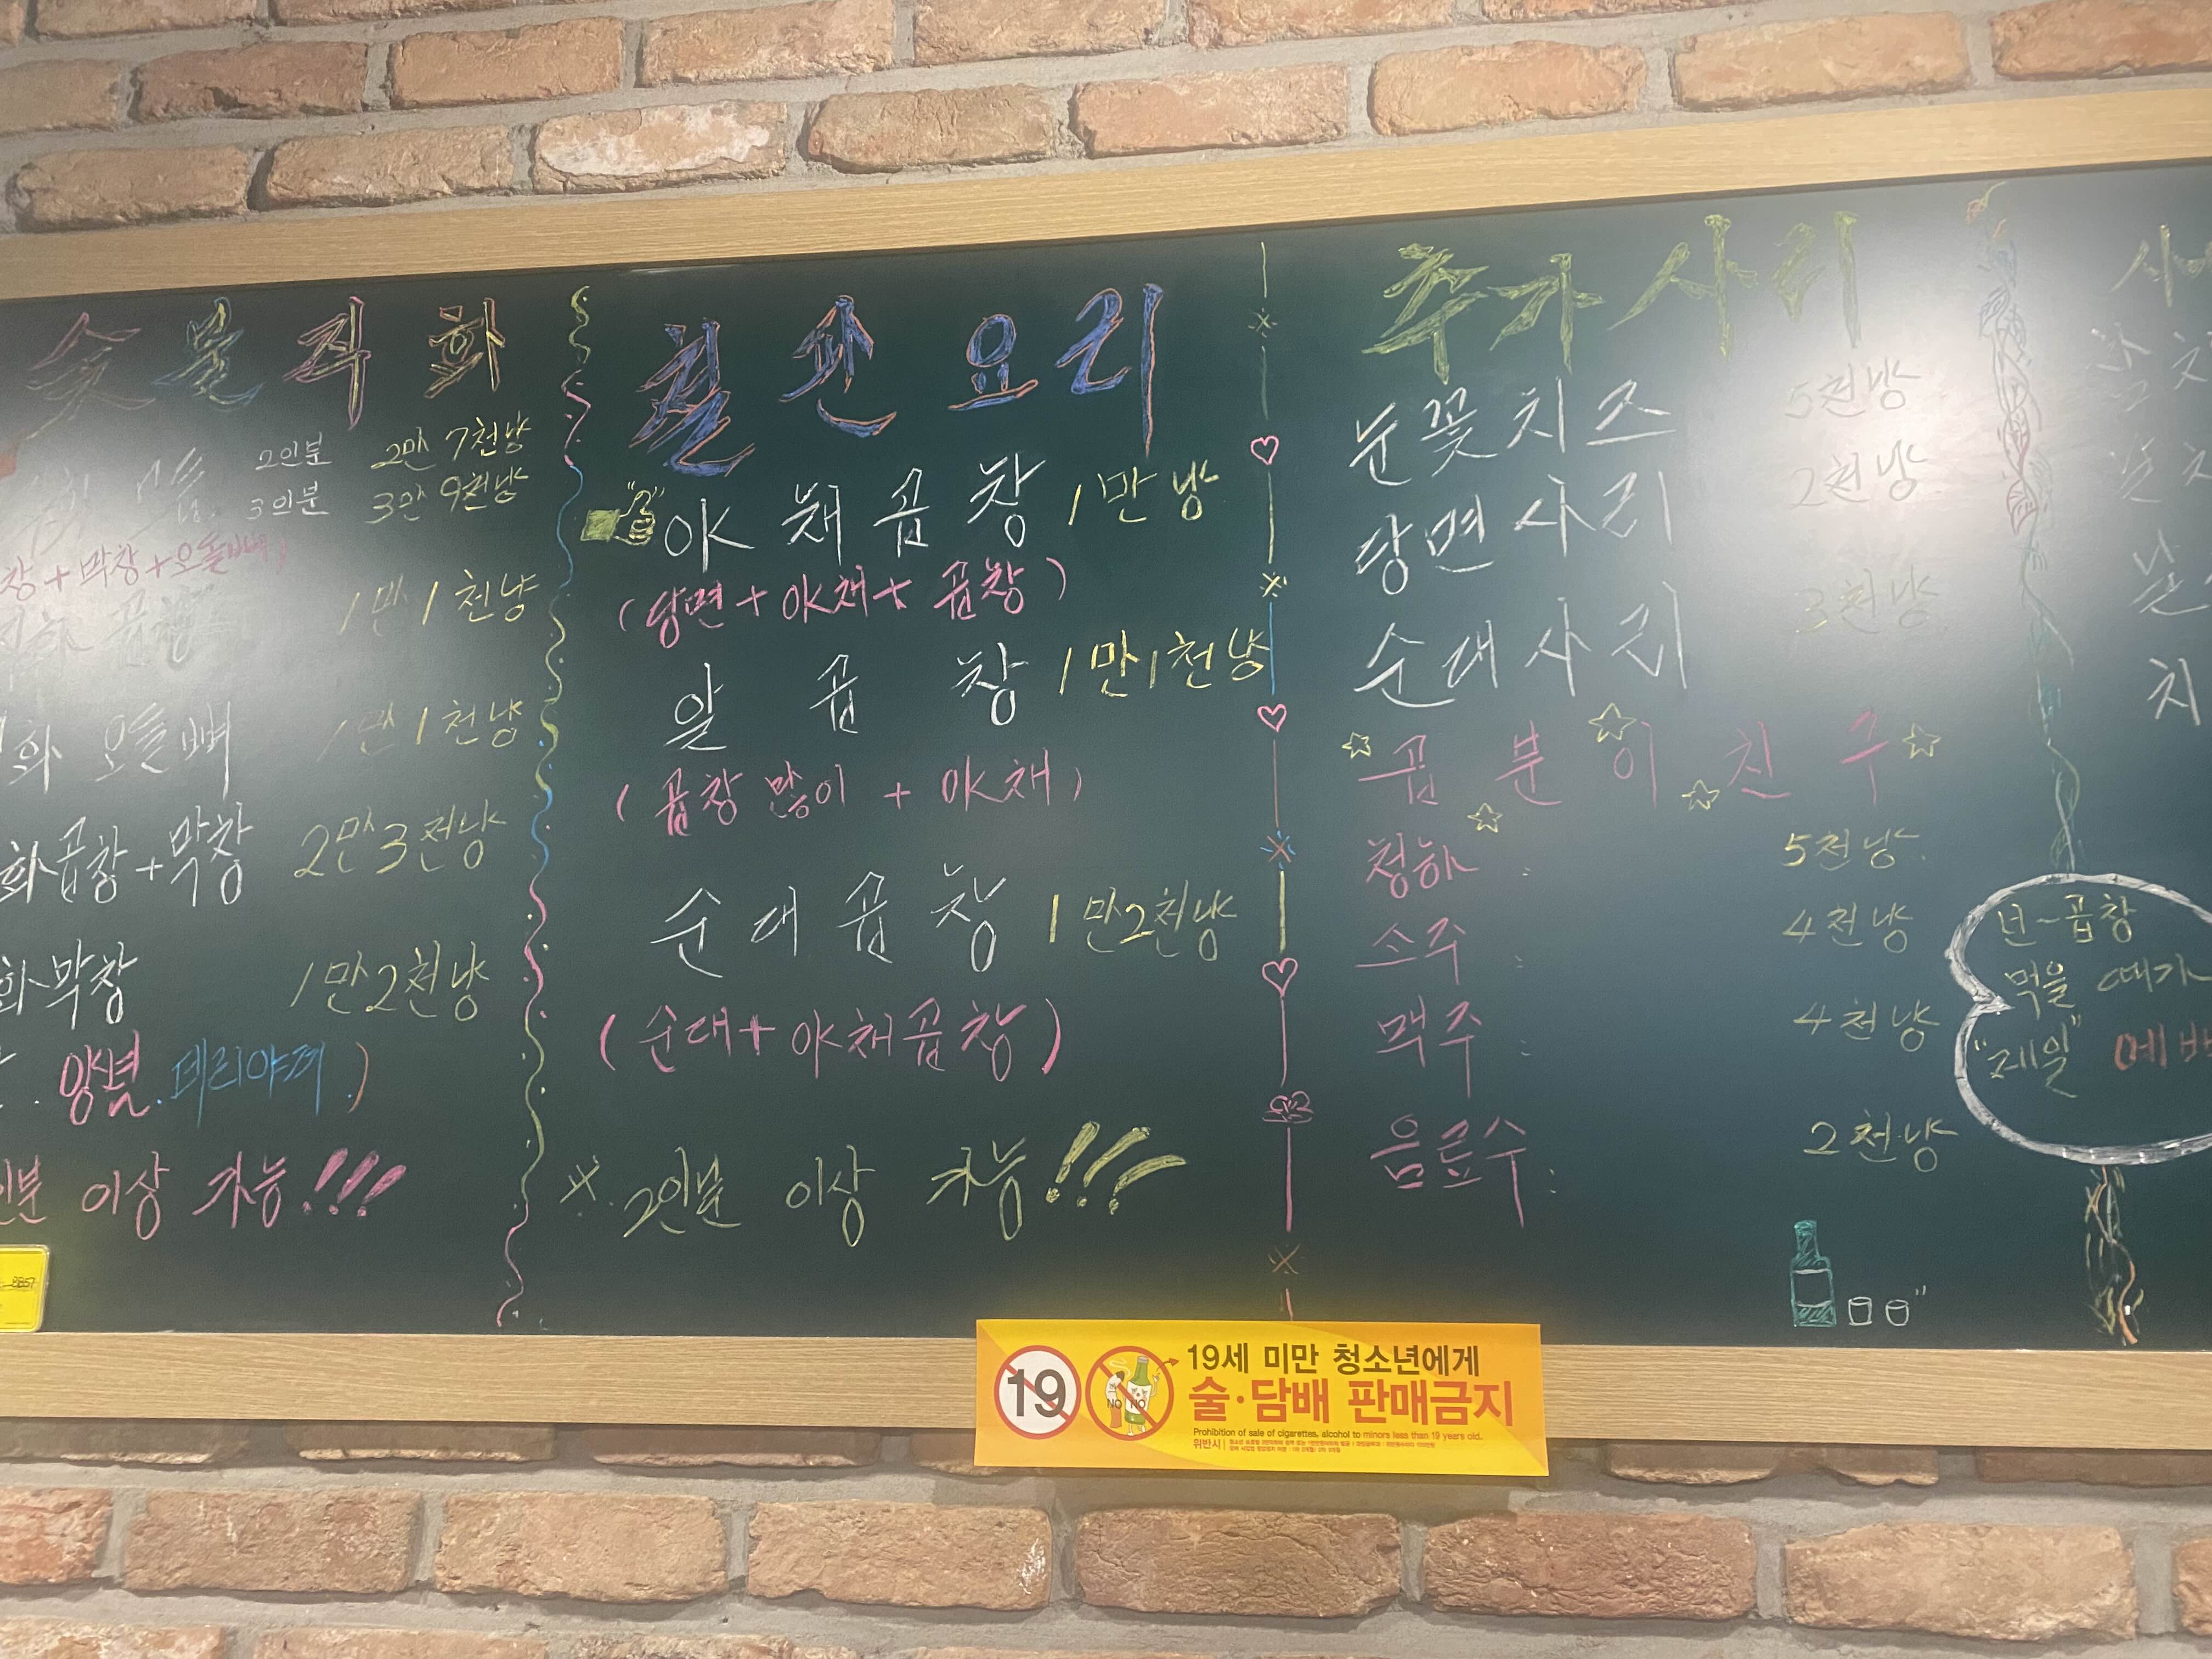 숯불직화
모듬 2인분 2만 7천냥
3인분 3만 9천냥
창+막창+오돌뼈)
직화 곱창 1만 1천냥
직화 오돌뼈 1만 1천냥
화곱창+막창 2만3천냥
화막창 1만2천냥
양념.데리야끼.)
인분 이상 가능!!!
철판요리
야채곱창 1만냥
(당면+야채+곱창)
알곱창 1만1천냥
(곱창 많이 + 야채)
순대곱창 1만2천냥
(순대+야채곱창)
※ 2인분 이상 가능!!!
추가사리
눈꽃치즈 5천냥
당면사리 2천냥
순대사리 3천냥
곱분이친구
청하 : 5천냥
소주 : 4천냥
맥주 : 4천냥
음료수 : 2천냥
넌~곱창
먹을 때가
"제일" 예뻐
19
NO NO
19세 미만 청소년에게
술·담배 판매금지
Prohibition of sale of cigarettes, alcohol to minors less than 19 years old.
위반시